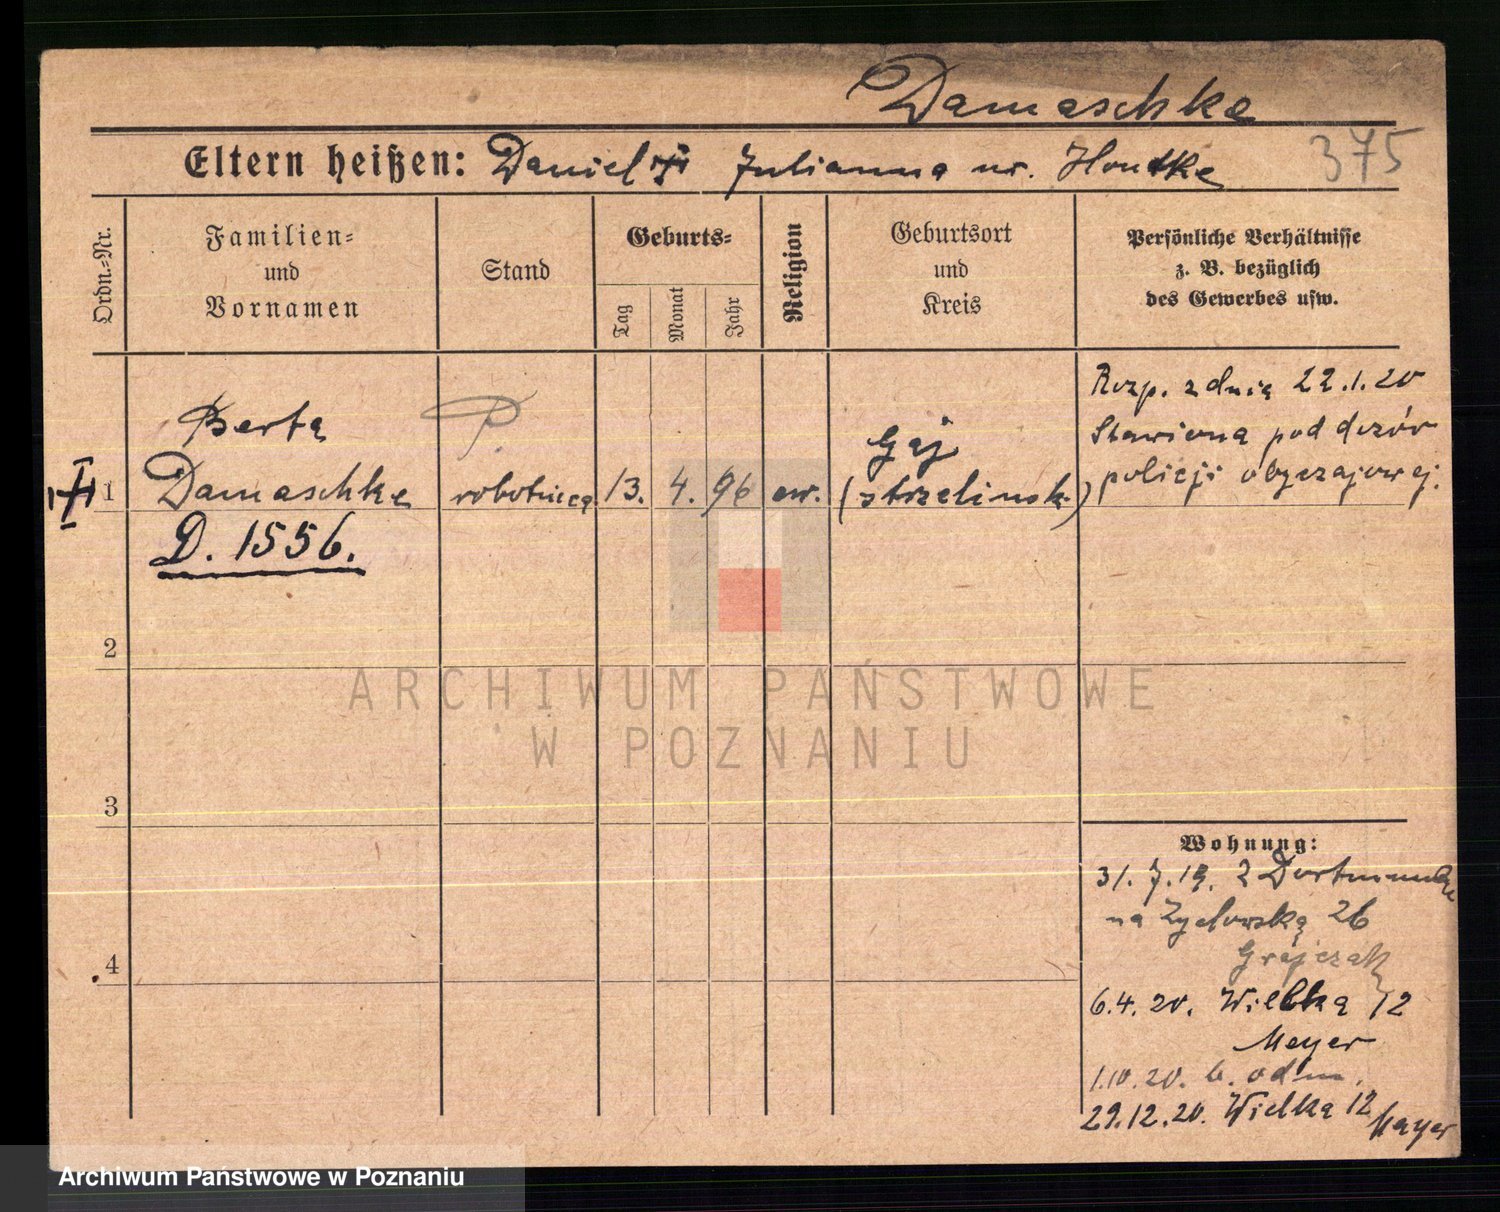 Damaschke
375
Eltern heißen: Daniel Julianna ur.
Ordn.-Nr.
Familien-
und
Vornamen
Stand
Geburts-
Tag
Monat
Jahr
Religion
Geburtsort
und
Kreis
Persönliche Verhältnisse
z. B. bezüglich
des Gewerbes usw.
Rozp. z dnia 22.1.20
Stawiona pod dozór
policji obyczajowej.
Berta
P.
Gaj
1 Damaschke robotnica 13. 4. 96 ew. (strzelinsk.)
D. 1556.
2
3
4
Wohnung:
31. 7. 19. z Dortmundu
na Żydowską 26
Grajczak
6.4. 20. Wielka 12
Meyer
1.10.20. b. odm.
29.12.20. Wielka 12
Mayer
ARCHIWUM PAŃSTWOWE
W POZNANIU
Archiwum Państwowe w Poznaniu